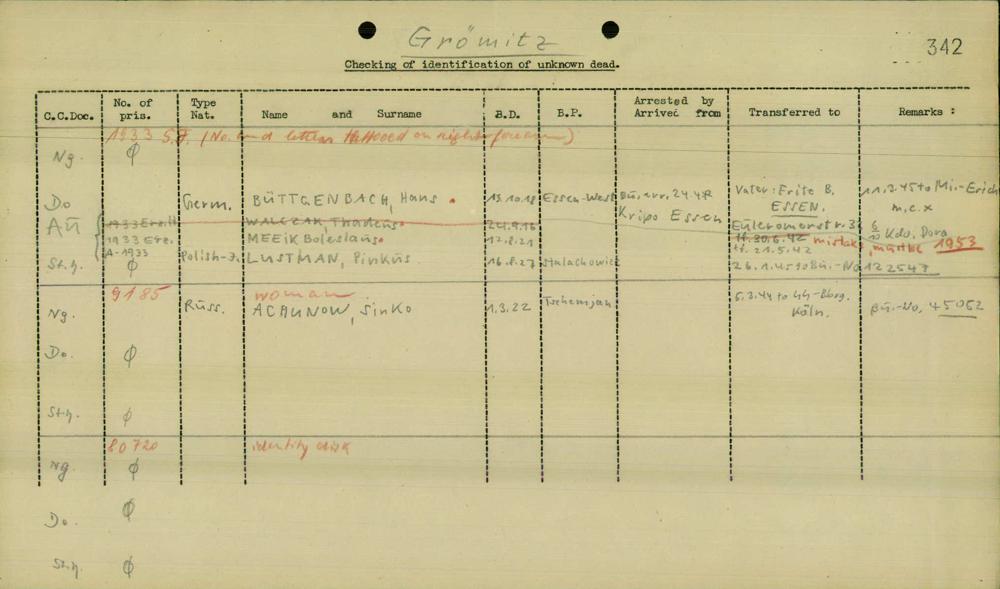 Grömitz
342
Checking of identification of unknown dead.
C.C.Doc. No. of pris. Type Nat. Name and Surname B.D. B.P. Arrested by Arrived from Transferred to Remarks :
1933 S.F. (No. and letters tattooed on right forearm)
Ng. ∅
Do Germ. BÜTTGENBACH, Hans 13.10.18 Essen-West Bü. arr. 24.4.42 Kripo Essen Vater: Fritz B. ESSEN. 11.2.45 to Mi.-Erich
Aü 1933 WALCZAK, Thadeus 24.9.16 Kdo. Dora
1933 MEEiK Boleslaus 12.8.21 H. 30.6.42 mistake, must be 1953
A-1933 H. 21.5.42
St.h. ∅ Polish-J. LUSTMAN, Pinkus 16.8.27 26.1.45 to Bü.-No 122547
9185 woman
Ng. Russ. ACHUNOW, Sinko 1.3.22 Tschemjan 5.3.44 to SS-Bbrg. Köln. Bü.-No. 45062
Do. ∅
St.h. ∅
80720 identity disk
Ng. ∅
Do. ∅
St.h. ∅